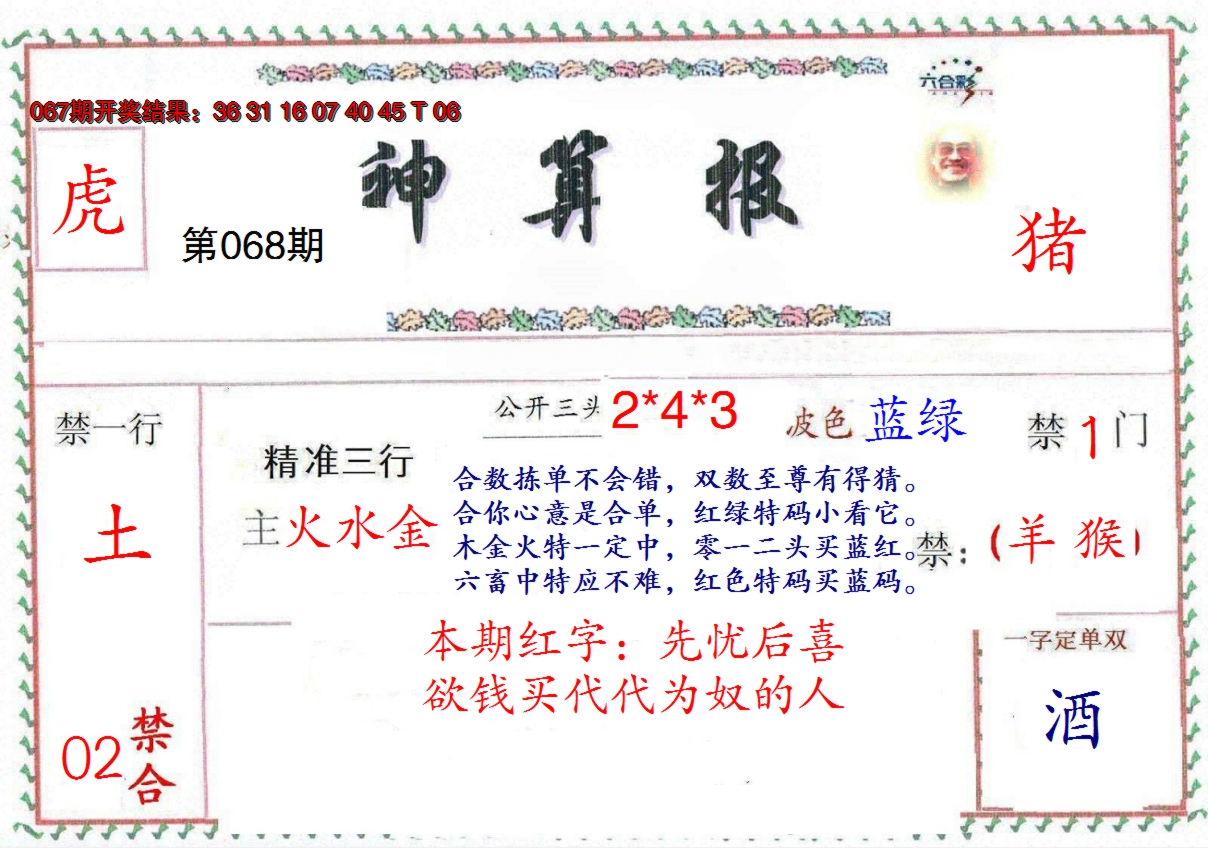 六合彩
067期开奖结果：36 31 16 07 40 45 T 06
虎
神算报
第068期
猪
禁一行
土
02
禁合
精准三行
主火水金
公开三头 2*4*3
波色 蓝绿
禁1门
合数拣单不会错，双数至尊有得猜。
合你心意是合单，红绿特码小看它。
木金火特一定中，零一二头买蓝红。
六畜中特应不难，红色特码买蓝码。
禁：（羊 猴）
本期红字：先忧后喜
欲钱买代代为奴的人
一字定单双
酒